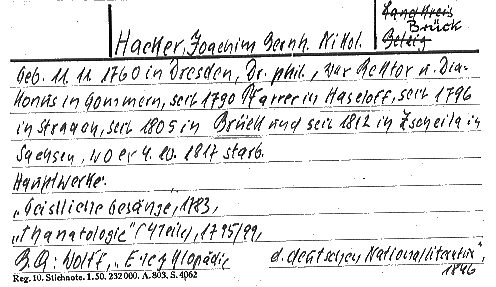 Landkreis
Brück
Belzig
Hacker, Joachim Bernh. Nikol.
Geb. 11. 11. 1760 in Dresden, Dr. phil., war Rektor u. Dia-
konus in Gommern, seit 1790 Pfarrer in Haseloff, seit 1796
in Straach, seit 1805 in Brück und seit 1812 in Zscheila in
Sachsen, wo er 4. 10. 1817 starb.
Hauptwerke.
„Geistliche Gesänge, 1783,
„Thanatologie“ (4 Teile), 1795/99,
B.Q.: Wolff, „Encyklopädie d. deutschen Nationalliteratur“,
1846
Reg. 10. Stichnote. 1. 50. 232 000. A. 803. S. 4062